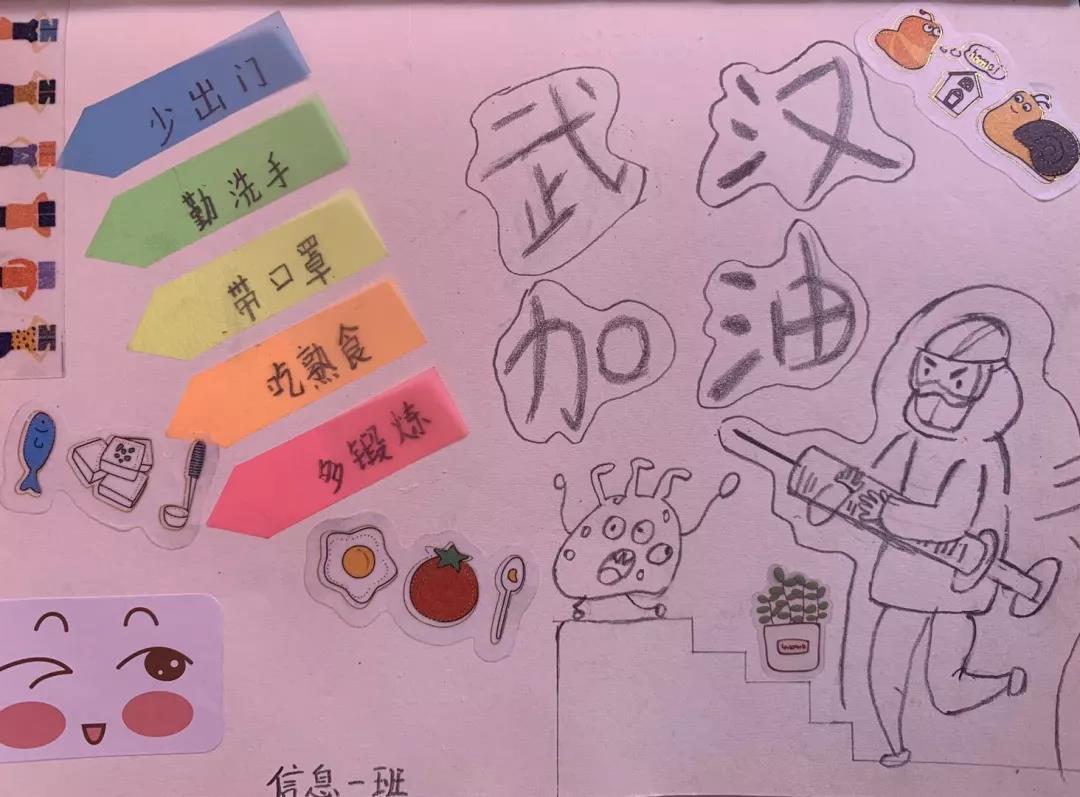 少出门
勤洗手
带口罩
吃熟食
多锻炼
武汉
加油
信息一班